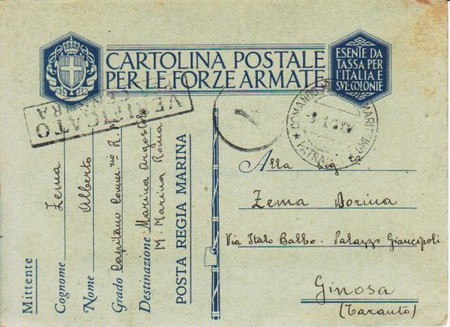 CARTOLINA POSTALE
PER LE FORZE ARMATE
ESENTE DA
TASSA PER
L'ITALIA E
SUE COLONIE
VERIFICATO
CENSURA
Mittente
Cognome Zema
Nome Alberto
Grado Capitano Comm.rio R.M.
Destinazione Marina Argostoli
M. Marina Roma
POSTA REGIA MARINA
Alla Sig.ta
Zema Dorina
Via Italo Balbo. Palazzo Giancipoli
Ginosa
(Taranto)